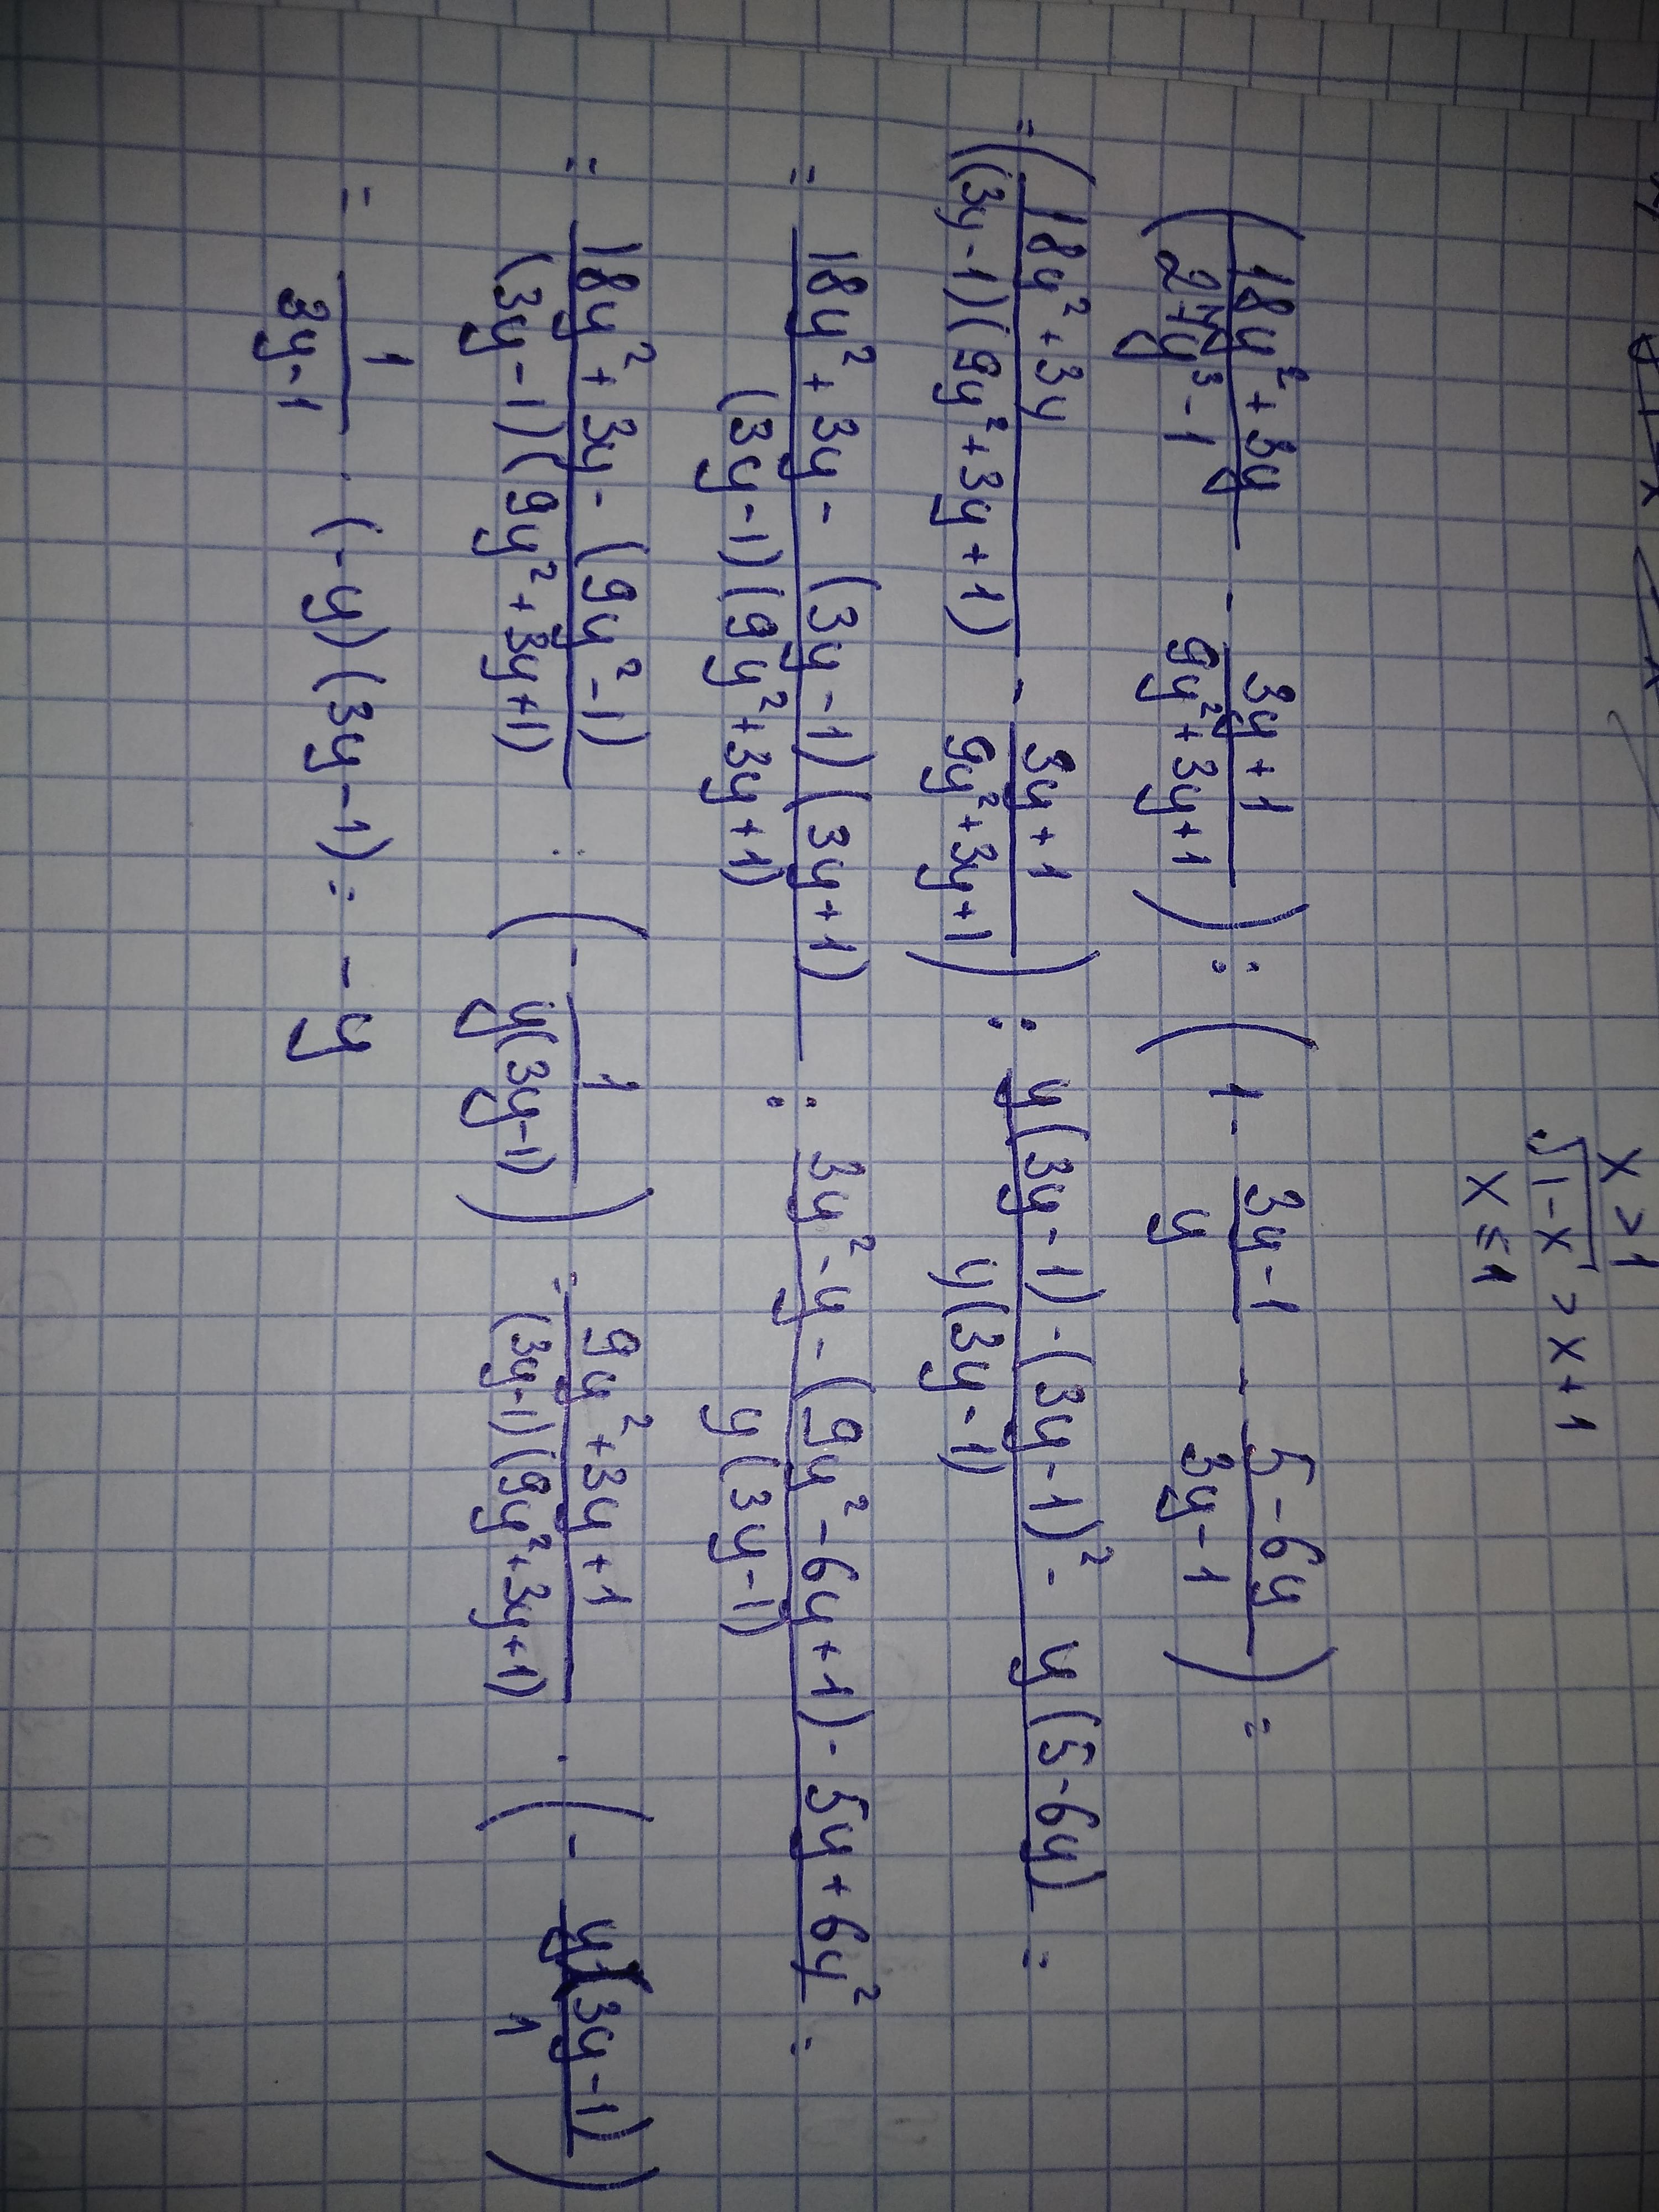 x > 1
√(1-x) > x + 1
x ≤ 1
((18y² + 3y)/(27y³ - 1) - (3y + 1)/(9y² + 3y + 1)) : (1 - (3y - 1)/y - (5 - 6y)/(3y - 1)) =
= ((18y² + 3y)/((3y - 1)(9y² + 3y + 1)) - (3y + 1)/(9y² + 3y + 1)) : (y(3y - 1) - (3y - 1)² - y(5 - 6y))/(y(3y - 1)) =
= (18y² + 3y - (3y - 1)(3y + 1))/((3y - 1)(9y² + 3y + 1)) : (3y² - y - (9y² - 6y + 1) - 5y + 6y²)/(y(3y - 1)) =
= (18y² + 3y - (9y² - 1))/((3y - 1)(9y² + 3y + 1)) : (- 1/(y(3y - 1))) = (9y² + 3y + 1)/((3y - 1)(9y² + 3y + 1)) · (- y(3y - 1)/1)
= 1/(3y - 1) · (-y)(3y - 1) = -y